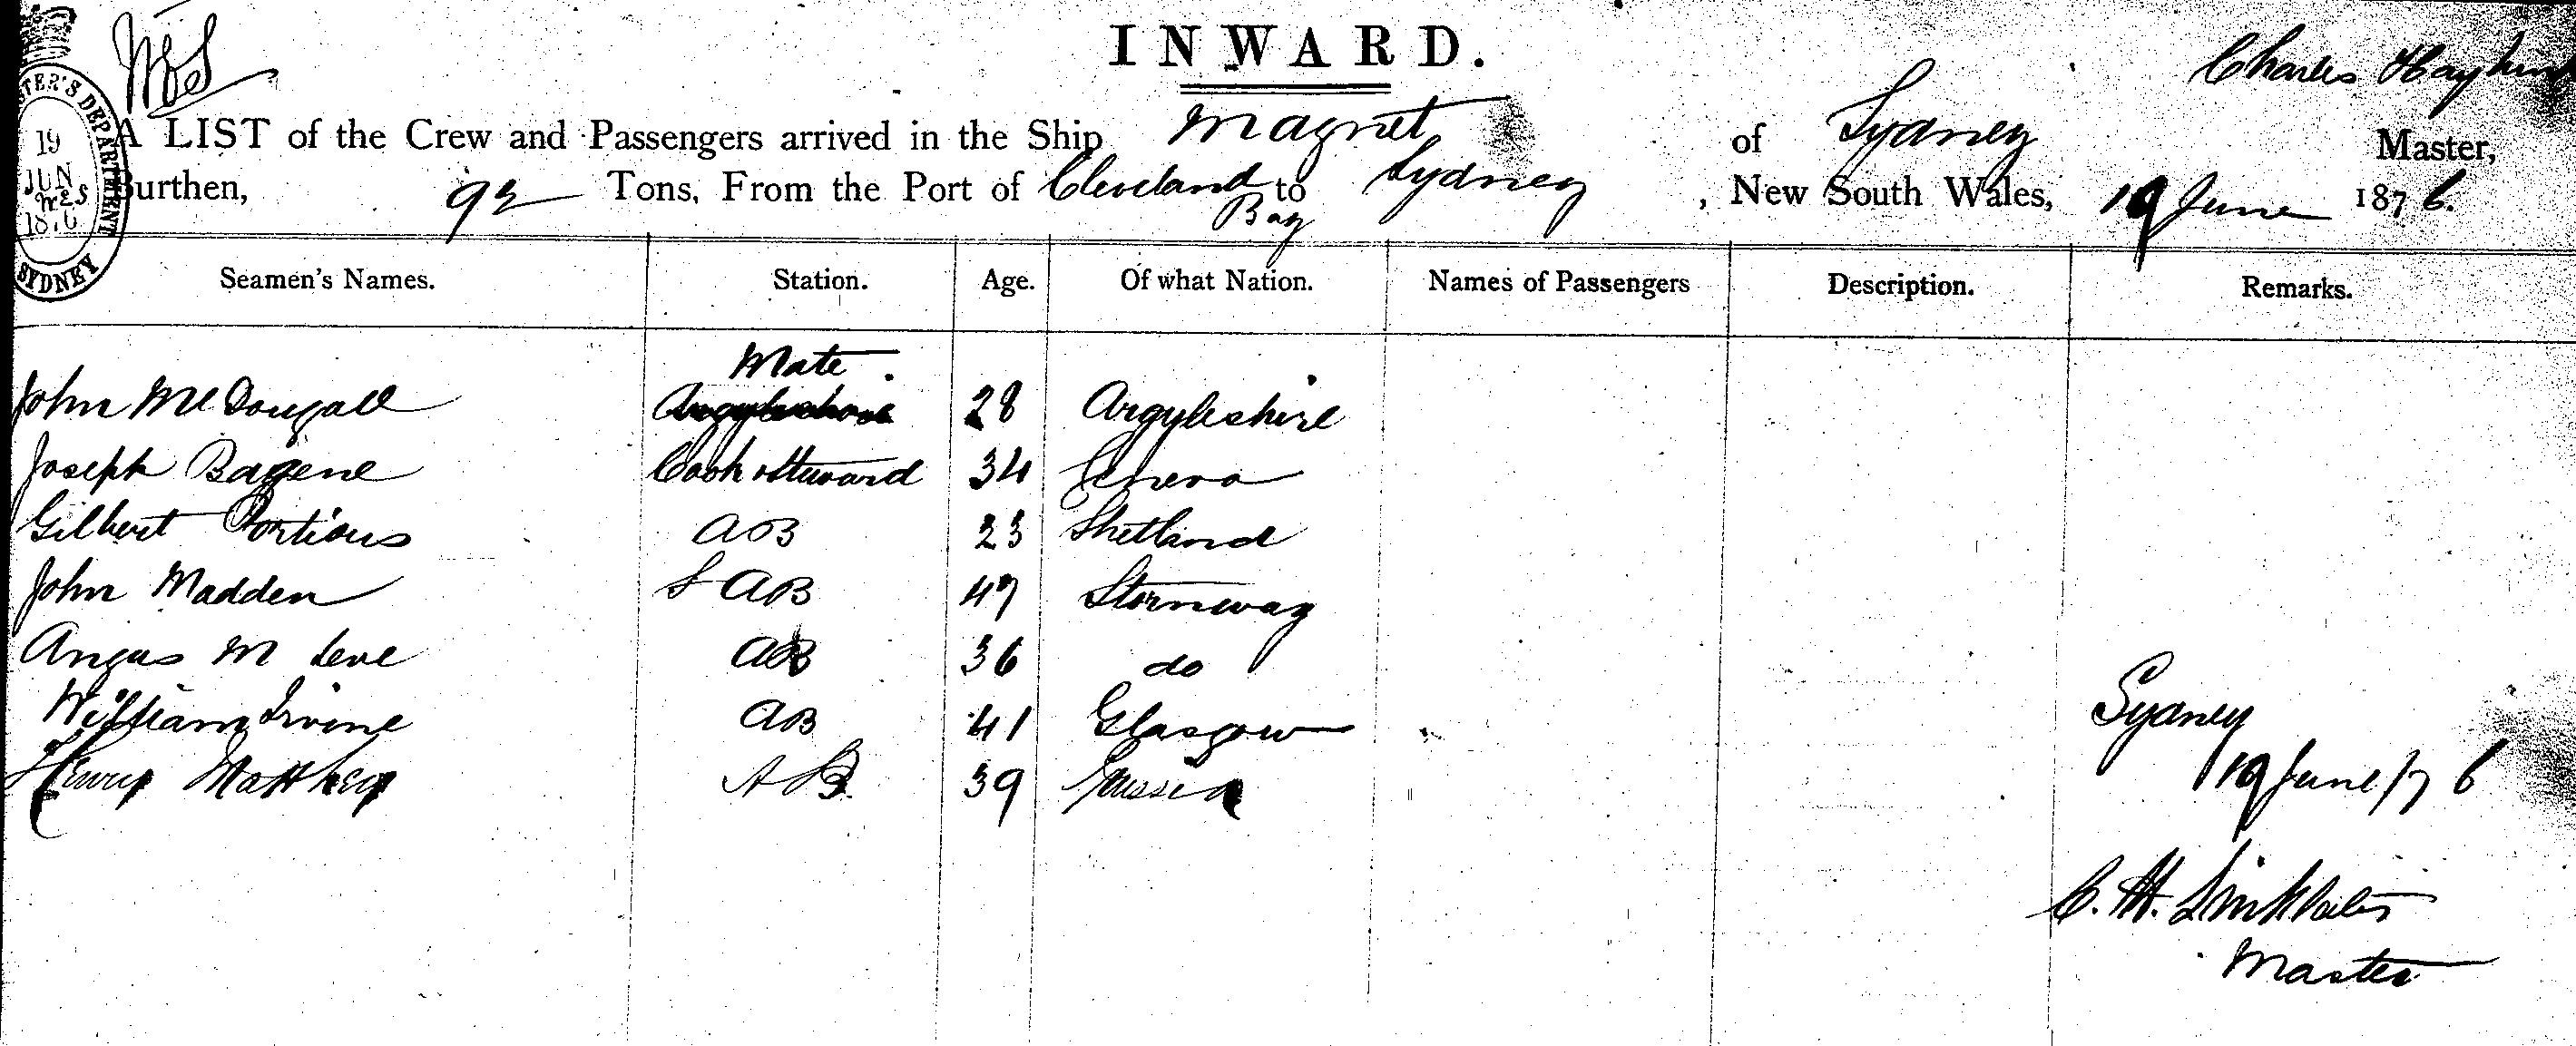 INWARD.
Charles
A LIST of the Crew and Passengers arrived in the Ship Magnet of Sydney Master,
Burthen, 92 Tons, From the Port of Cleveland Bay to Sydney, New South Wales, 19 June 1876.
TER'S DEPARTMENT
19
JUN
1876
SYDNEY
Seamen's Names. Station. Age. Of what Nation. Names of Passengers Description. Remarks.
Mate.
John McDougall 28 Argyleshire
Joseph Cook & Steward 34 Geneva
Gilbert Portious AB 23 Shetland
John Madden AB 47 Stornway
Angus M AB 36 do
William Irvine AB 41 Glasgow
Henry Matthew AB 39
Sydney
19 June/76
C. H. Linklater
Master